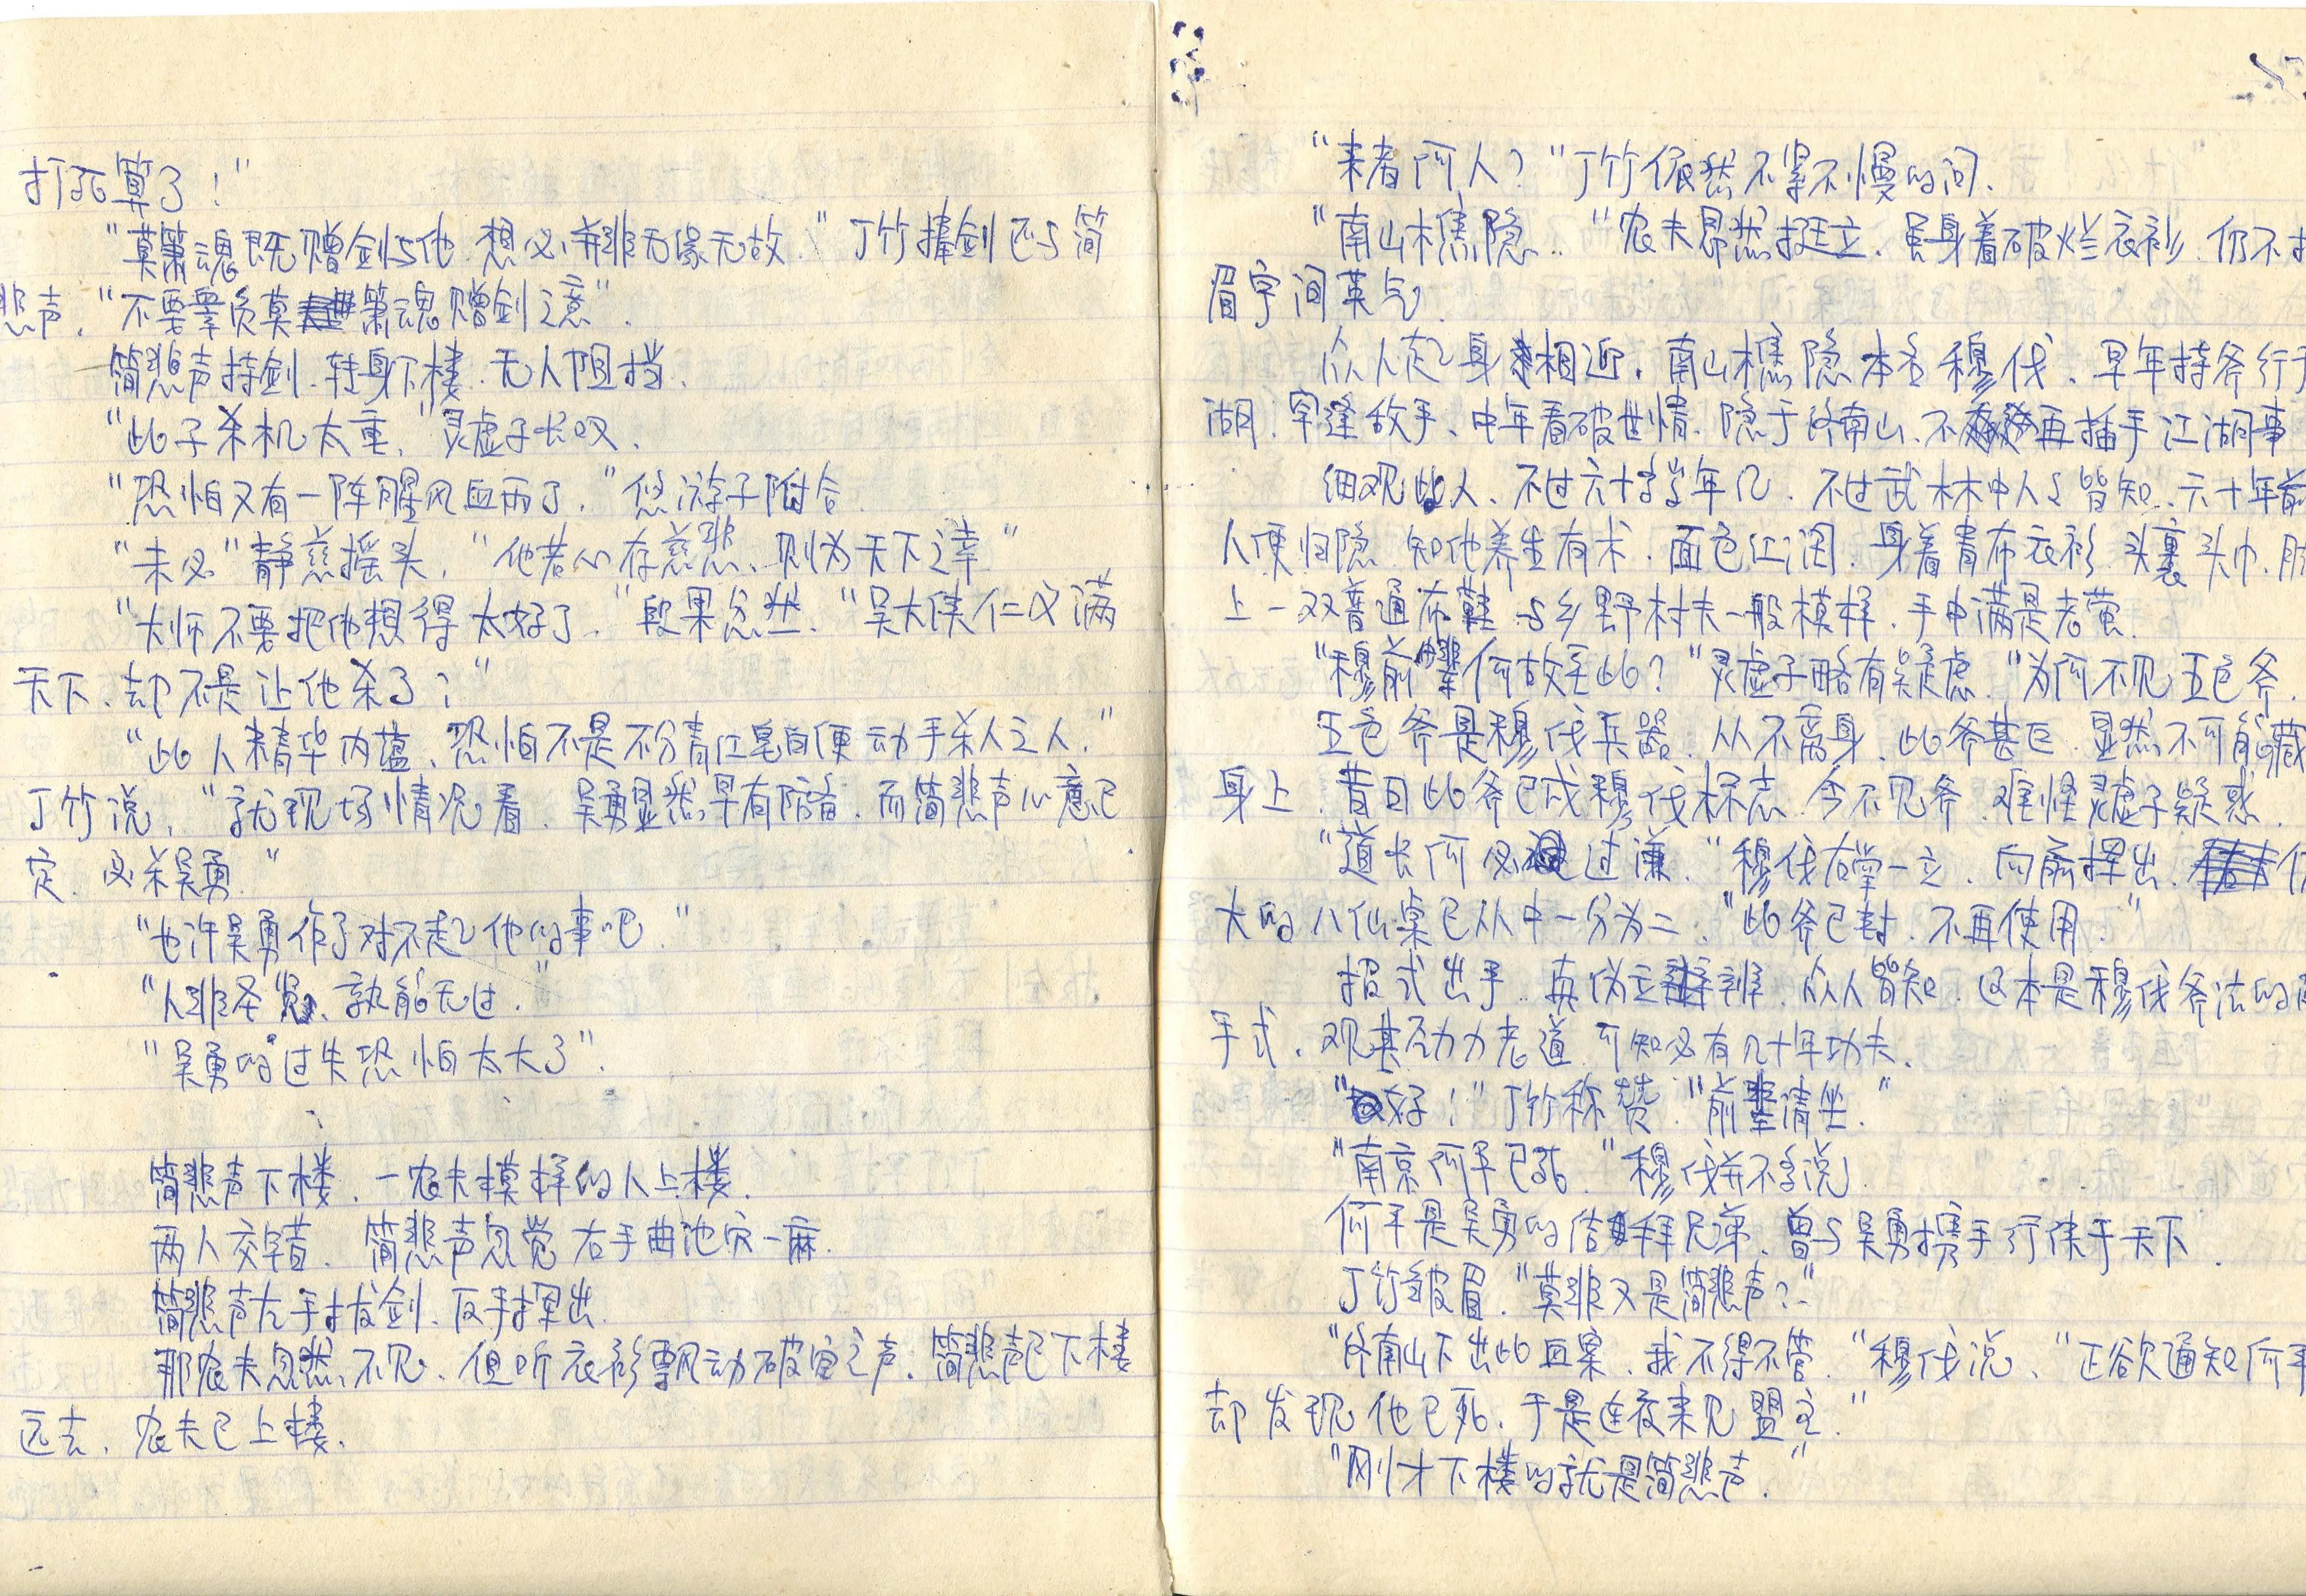 打死算了！"
"莫箫魂既赠剑与他.想必并非无缘无故."丁竹捧剑还与简
悲声."不要辜负莫箫魂赠剑之意".
简悲声持剑.转身下楼.无人阻挡.
"此子杀机太重."灵虚子长叹.
"恐怕又有一阵腥风血雨了."悠游子附合.
"未必"静慈摇头."他若心存慈悲、则为天下之幸"
"大师不要把他想得太好了."段果忿然."吴大侠仁义满
天下.却不是让他杀了?"
"此人精华内蕴、恐怕不是不分青红皂白便动手杀人之人."
丁竹说."就现场情况看.吴勇显然早有防备.而简悲声心意已
定.必杀吴勇."
"也许吴勇作了对不起他的事吧."
"人非圣贤、孰能无过."
"吴勇的过失恐怕太大了".
简悲声下楼.一农夫模样的人上楼.
两人交错.简悲声忽觉右手曲池穴一麻.
简悲声左手拔剑.反手挥出.
那农夫忽然不见、但听衣衫飘动破空之声.简悲声已下楼
远去.农夫已上楼.
"来者何人?"丁竹依然不紧不慢的问.
"南山樵隐.."农夫昂然挺立.虽身着破烂衣衫.仍不
眉宇间英气.
众人起身相迎.南山樵隐本名穆伐、早年持斧行于
湖.罕逢敌手、中年看破世情.隐于终南山、不再插手江湖事
细观此人、不过六十岁年纪.不过武林中人皆知.六十年前
人便归隐.知他养生有术.面色红润.身着青布衣衫.头裹头巾.脚
上一双普通布鞋.与乡野村夫一般模样.手中满是老茧.
"穆前辈何故至此?"灵虚子略有疑虑."为何不见五色斧.
五色斧是穆伐兵器.从不离身.此斧甚巨.显然不可能藏
身上.昔日此斧已成穆伐标志.今不见斧.难怪灵虚子疑惑.
"道长何必过谦."穆伐右掌一立.向前挥出.
大的八仙桌已从中一分为二."此斧已封.不再使用."
招式出手.真伪立辨.众人皆知.这本是穆伐斧法的
手式.观其劲力老道.可知必有几十年功夫.
"好!"丁竹称赞."前辈请坐."
"南京何平已死."穆伐并不多说.
何平是吴勇的结拜兄弟.曾与吴勇携手行侠于天下.
丁竹皱眉."莫非又是简悲声?"
"终南山下出此血案.我不得不管."穆伐说、"正欲通知何平
却发现他已死.于是连夜来见盟主."
"刚才下楼的就是简悲声."